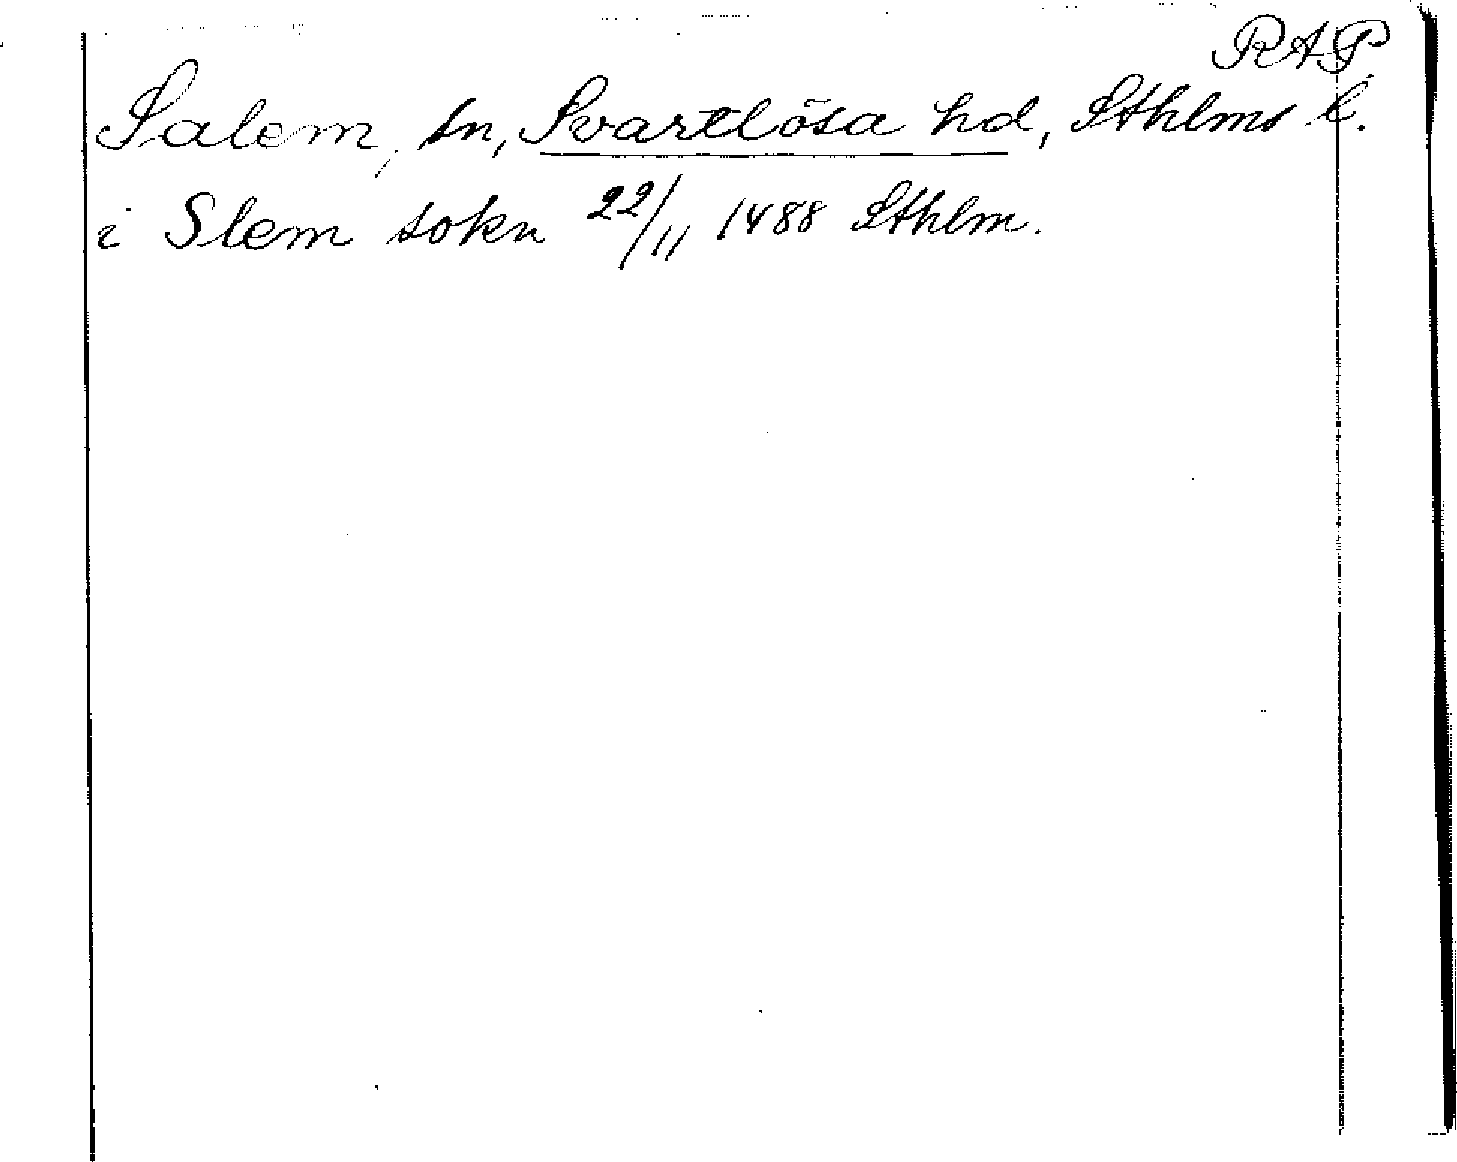 RAP.
Salem, sn, Svartlösa hd, Sthlms l.
i Slem sokn 22/11 1488 Sthlm.